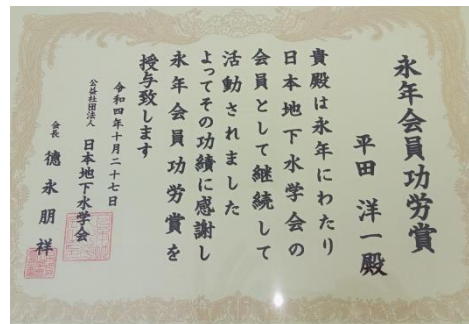 永年会員功労賞
平田 洋一殿
貴殿は永年にわたり
日本地下水学会の
会員として継続して
活動されました
よってその功績に感謝し
永年会員功労賞を
授与致します
令和四年十月二十七日
公益社団法人 日本地下水学会
会長 德永朋祥